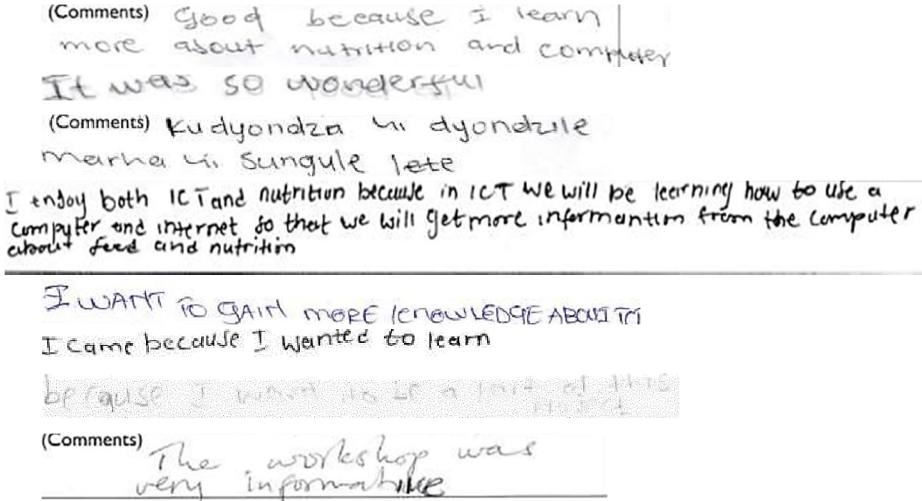 (Comments) Good because I learn
more about nutrition and computer
It was so wonderful
(Comments) Kudyondza hi dyondzile
marha hi sungule lete
I enjoy both ICT and nutrition because in ICT we will be learning how to use a
computer and internet so that we will get more informantion from the computer
about feed and nutrition
I WANT TO GAIN MORE KNOWLEDGE ABOUT
I came because I wanted to learn
because I want to be a part of this
project
(Comments) The workshop was
very informative